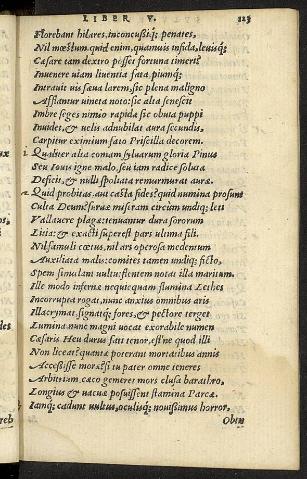 LIBER V. 123
Florebant hilares, inconcussiq; penates,
Nil mœstum. quid enim, quamuis infida, leuisq;
Cæsare tam dextro posset fortuna timeri?
Inuenere uiam liuentia fata, piumq;
Intrauit uis sæua larem, sic plena maligno
Afflantur uineta noto: sic alta senescit
Imbre seges nimio rapidæ sic obuia puppi
Inuidet, & uelis adnubilat aura secundis,
Carpitur eximium fato Priscilla decorem.
Qualiter alta comam syluarum gloria Pinus
Seu Iouis igne malo, seu iam radice soluta
Deficit, & nulli spoliata remurmurat auræ.
Quid probitas aut casta fides? quid numina prosunt
Culta Deum? furuæ miseram circum undiq; leti
Vallauere plagæ: tenuantur dura sororum
Licia, & exacti superest pars ultima fili.
Nil famuli cœtus, nil ars operosa medentum
Auxiliata malis: comites tamen undiq; ficto,
Spem simulant uultu: flentem notat illa maritum.
Ille modo infernæ nequicquam flumina Lethes
Incorrupta rogat, nunc anxius omnibus aris
Illacrymat, signatq; fores, & pectore terget
Lumina. nunc magni uocat exorabile numen
Cæsaris Heu durus fati tenor, est ne quod illi
Non liceat? quantæ poterant mortalibus annis
Accessisse moræ? si tu pater omne teneres
Arbitrium. cæco gemeret mors clusa barathro,
Longius & uacuæ posuissent stamina Parcæ.
Iamq; cadunt uultus, oculisq; nouissimus horror,
Obtu